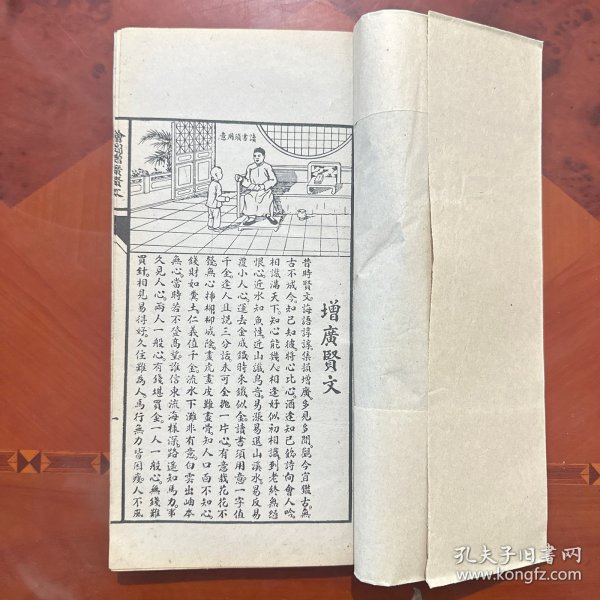 增廣賢文
讀書須用意
昔時賢文。誨語諄諄。集韻增廣。多見多聞。觀今宜鑑古。無
古不成今。知己知彼。將心比心。酒逢知己飲。詩向會人吟。
相識滿天下。知心能幾人。相逢好似初相識。到老終無怨
恨心。近水知魚性。近山識鳥音。易漲易退山溪水。易反易
覆小人心。運去金成鐵。時來鐵似金。讀書須用意。一字值
千金。逢人且說三分話。未可全拋一片心。有意栽花花不
發。無心插柳柳成陰。畫虎畫皮難畫骨。知人口面不知心。
錢財如糞土。仁義值千金。流水下灘非有意。白雲出岫本
無心。當時若不登高望。誰信東流海樣深。路遙知馬力。事
久見人心。兩人一般心。有錢堪買金。一人一般心。無錢難
買針。相見易得好。久住難為人。馬行無力皆因瘦。人不風
繪圖增廣賢文
一
孔夫子旧书网
www.kongfz.com